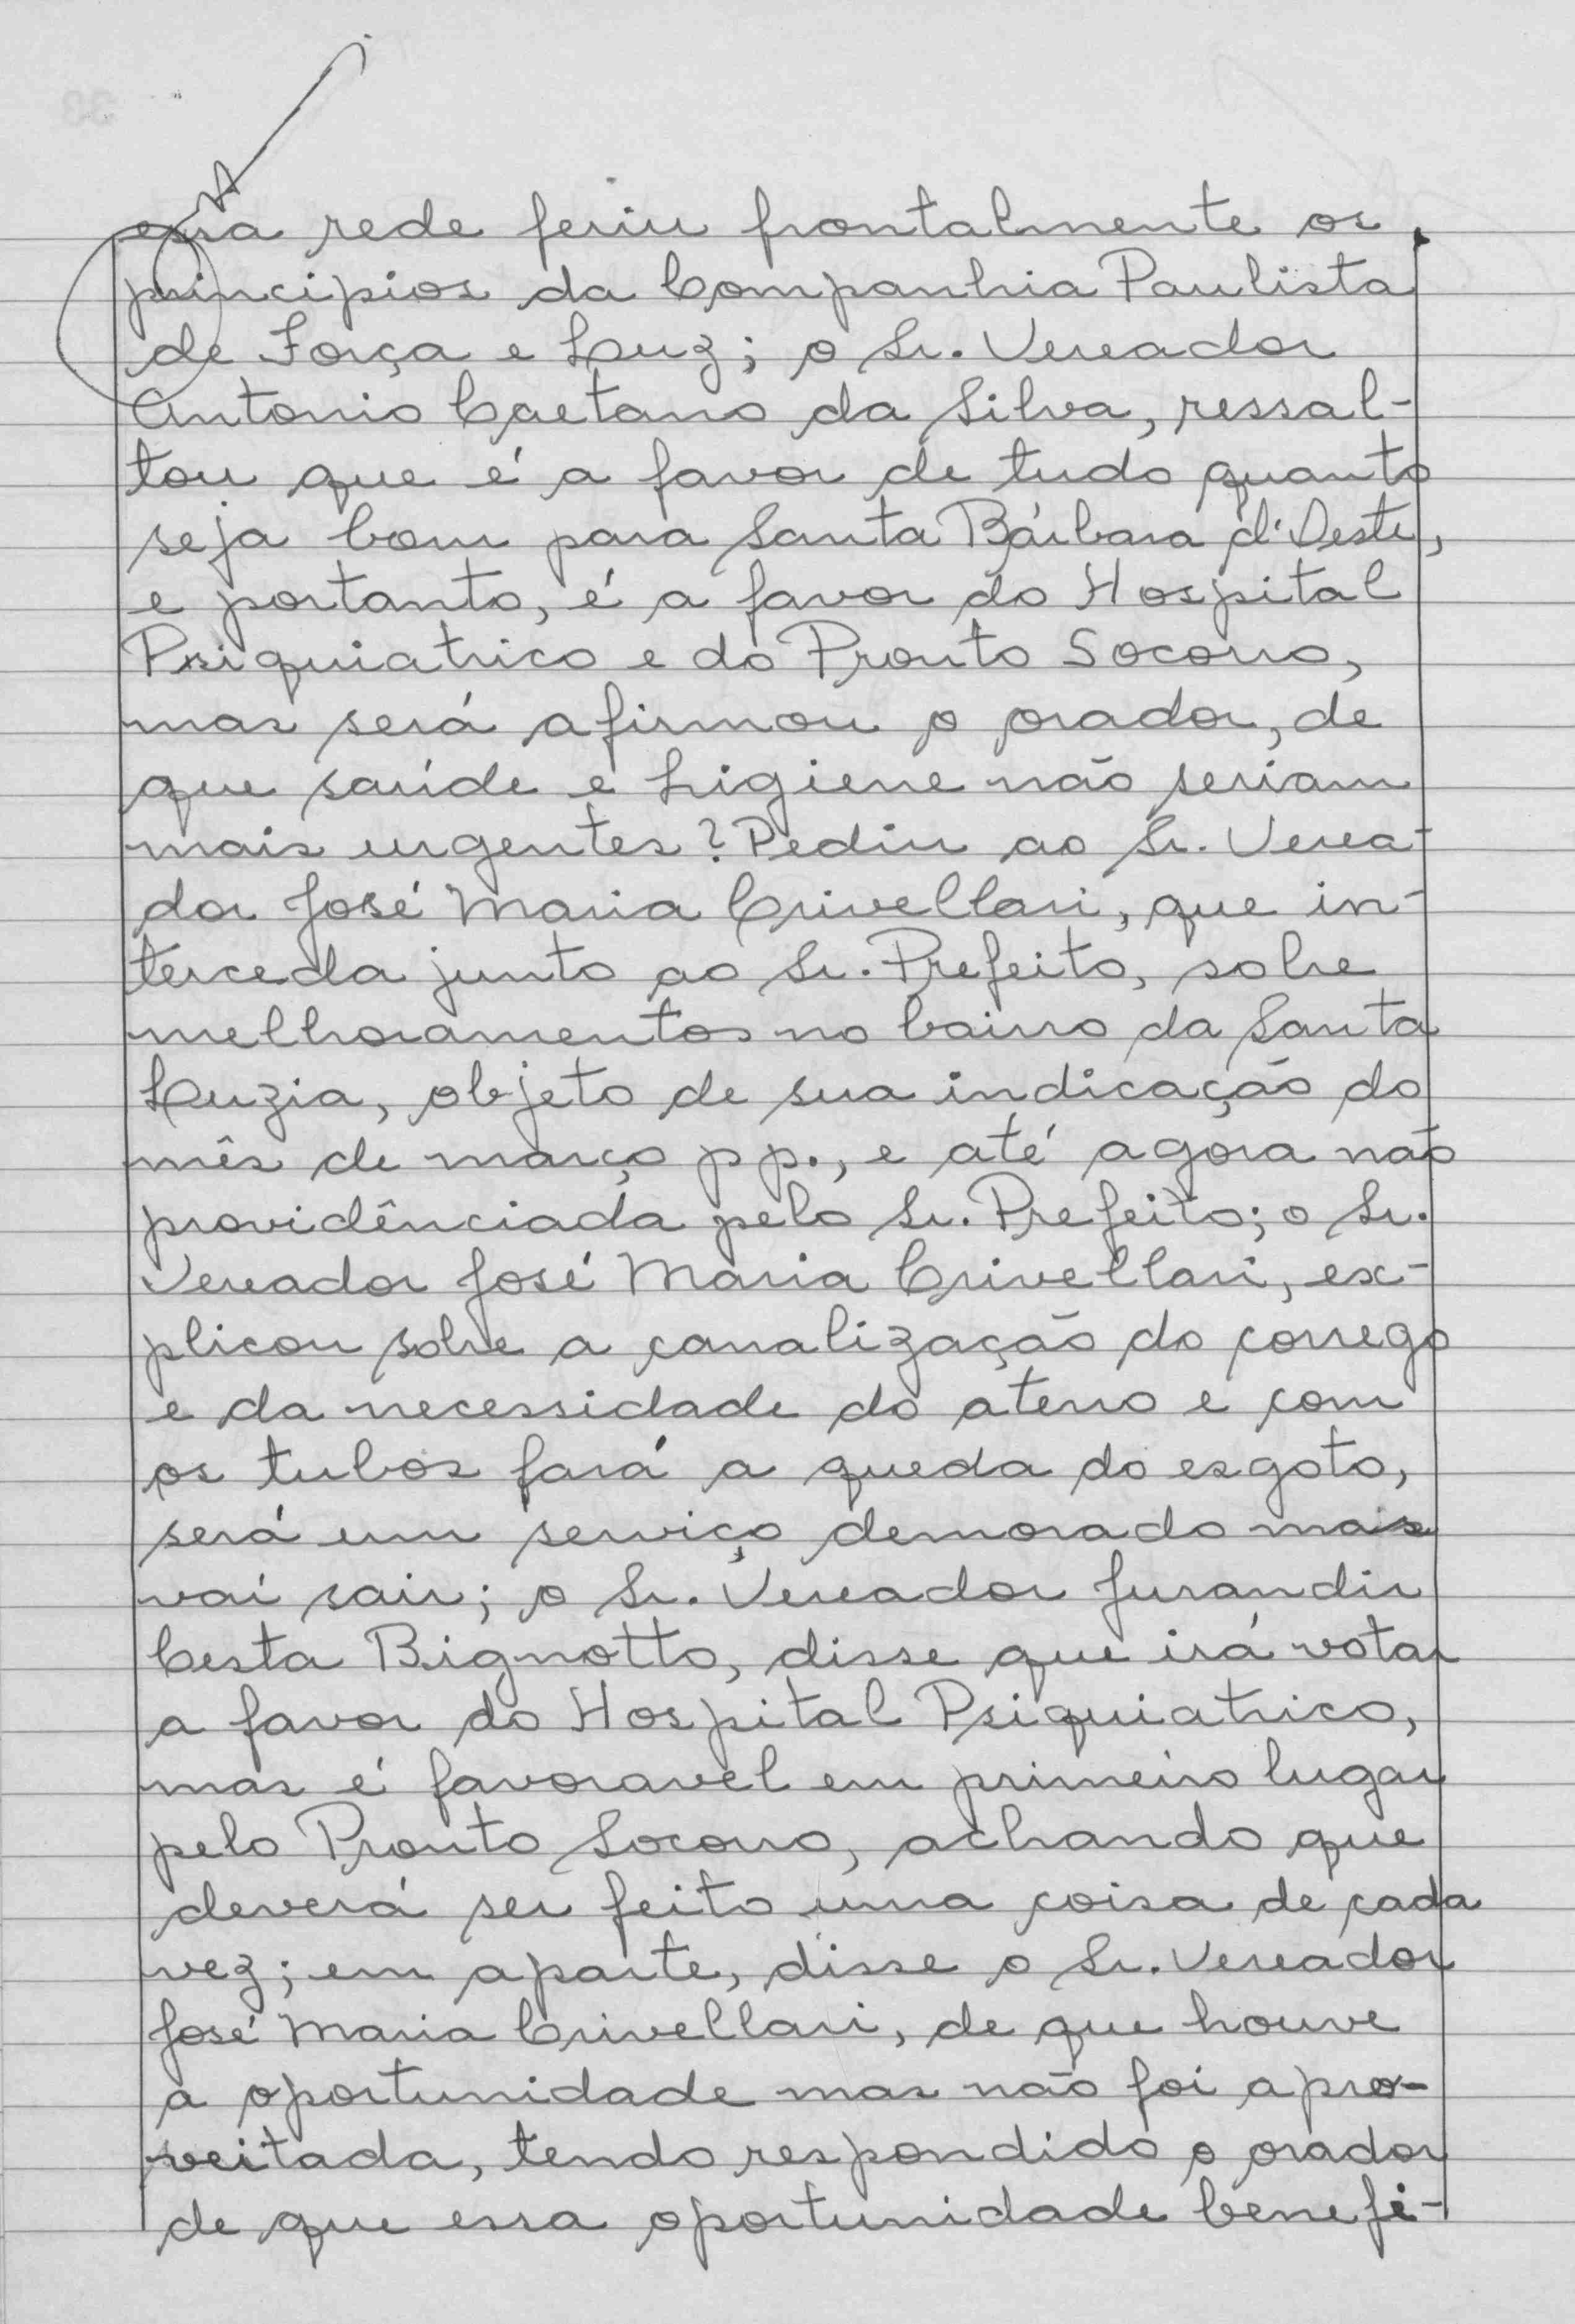 essa rede feriu frontalmente os
principios da Companhia Paulista
de Força e Luz; o Sr. Vereador
Antonio Caetano da Silva, ressal-
tou que é a favor de tudo quanto
seja bom para Santa Bárbara d'Oeste,
e portanto, é a favor do Hospital
Psiquiatrico e do Pronto Socorro,
mas será afirmou o orador, de
que saúde e higiene não seriam
mais urgentes? Pediu ao Sr. Verea-
dor José Maria Crivellari, que in-
terceda junto ao Sr. Prefeito, sobre
melhoramentos no bairro da Santa
Luzia, objeto de sua indicação do
mês de março pp., e até agora não
providênciada pelo Sr. Prefeito; o Sr.
Vereador José Maria Crivellari, ex-
plicou sobre a canalização do corrego
e da necessidade do aterro e com
os tubos fará a queda do esgoto,
será um serviço demorado mais
vai sair; o Sr. Vereador Jurandir
Cesta Bignotto, disse que irá votar
a favor do Hospital Psiquiatrico,
mas é favoravel em primeiro lugar
pelo Pronto Socorro, achando que
deverá ser feito uma coisa de cada
vez; em aparte, disse o Sr. Vereador
José Maria Crivellari, de que houve
a oportunidade mas não foi apro-
veitada, tendo respondido o orador
de que essa oportunidade benefi-